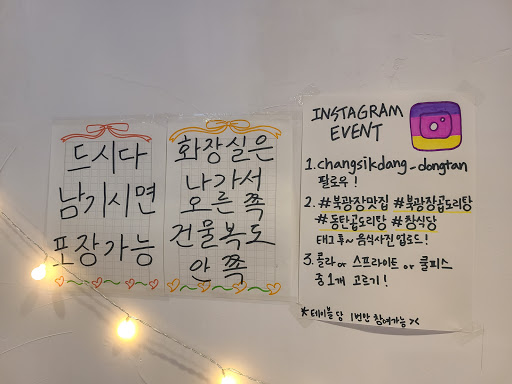 드시다
남기시면
포장가능
화장실은
나가서
오른 쪽
건물복도
안 쪽
INSTAGRAM
EVENT
1. changsikdang_dongtan
팔로우!
2. #북광장맛집 #북광장곱도리탕
#동탄곱도리탕 #창식당
태그 후~ 음식사진 업로드!
3. 콜라 or 스프라이트 or 쿨피스
중 1개 고르기!
* 테이블 당 1번만 참여가능 ><